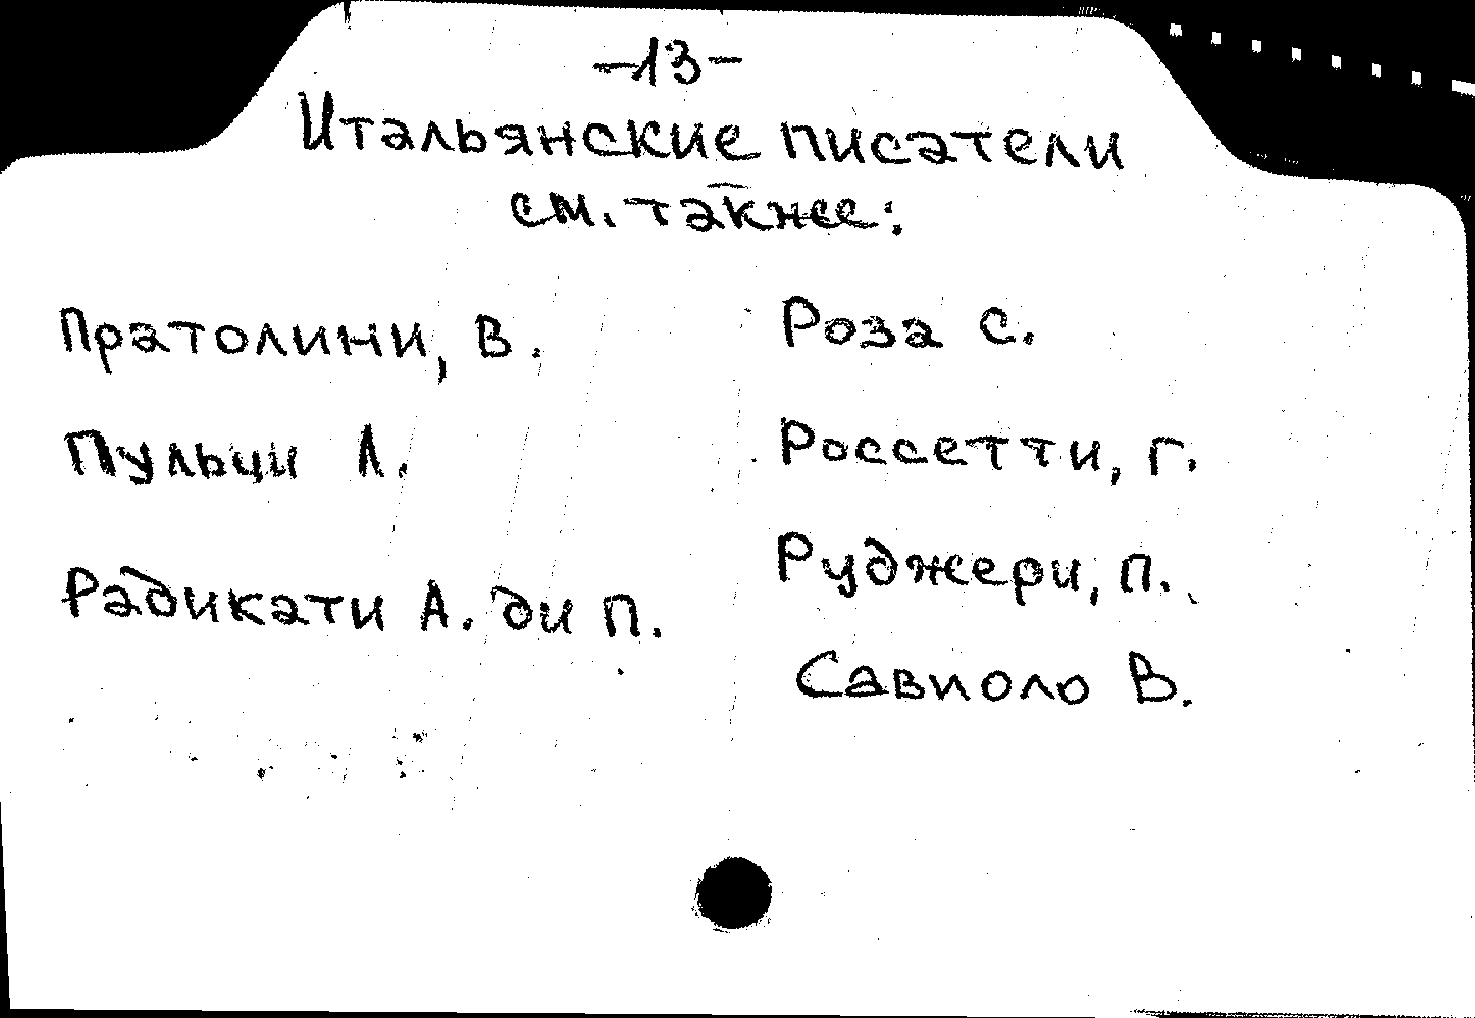 -13-
Итальянские писатели
см. также:
Пратолини, В.
Пульци Л.
Радикати А. ди П.
Роза С.
Россетти, Г.
Руджери, П.
Савиоло В.